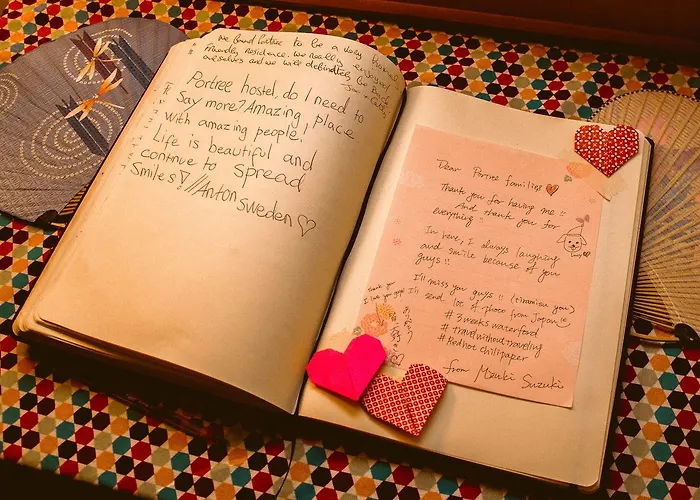 We found Portree to be a very
Friendly Residence. We really enjoyed
ourselves and we will definitely be Back
Portree hostel, do I need to
Say more? Amazing place
with amazing people.
Life is beautiful and
continue to spread
Smiles! //Anton Sweden ♡
Dear Portree families
Thank you for having me!!
And thank you for
everything
In here, I always laughing
and smile because of you
guys!!
I'll miss you guys!! (tiramisu you)
I'll send lot of photo from Japan
# 3weekswaterford
# travelwithouttraveling
# Redhotchillipaper
from Mzuki Suzuki
thank you
I love you guys